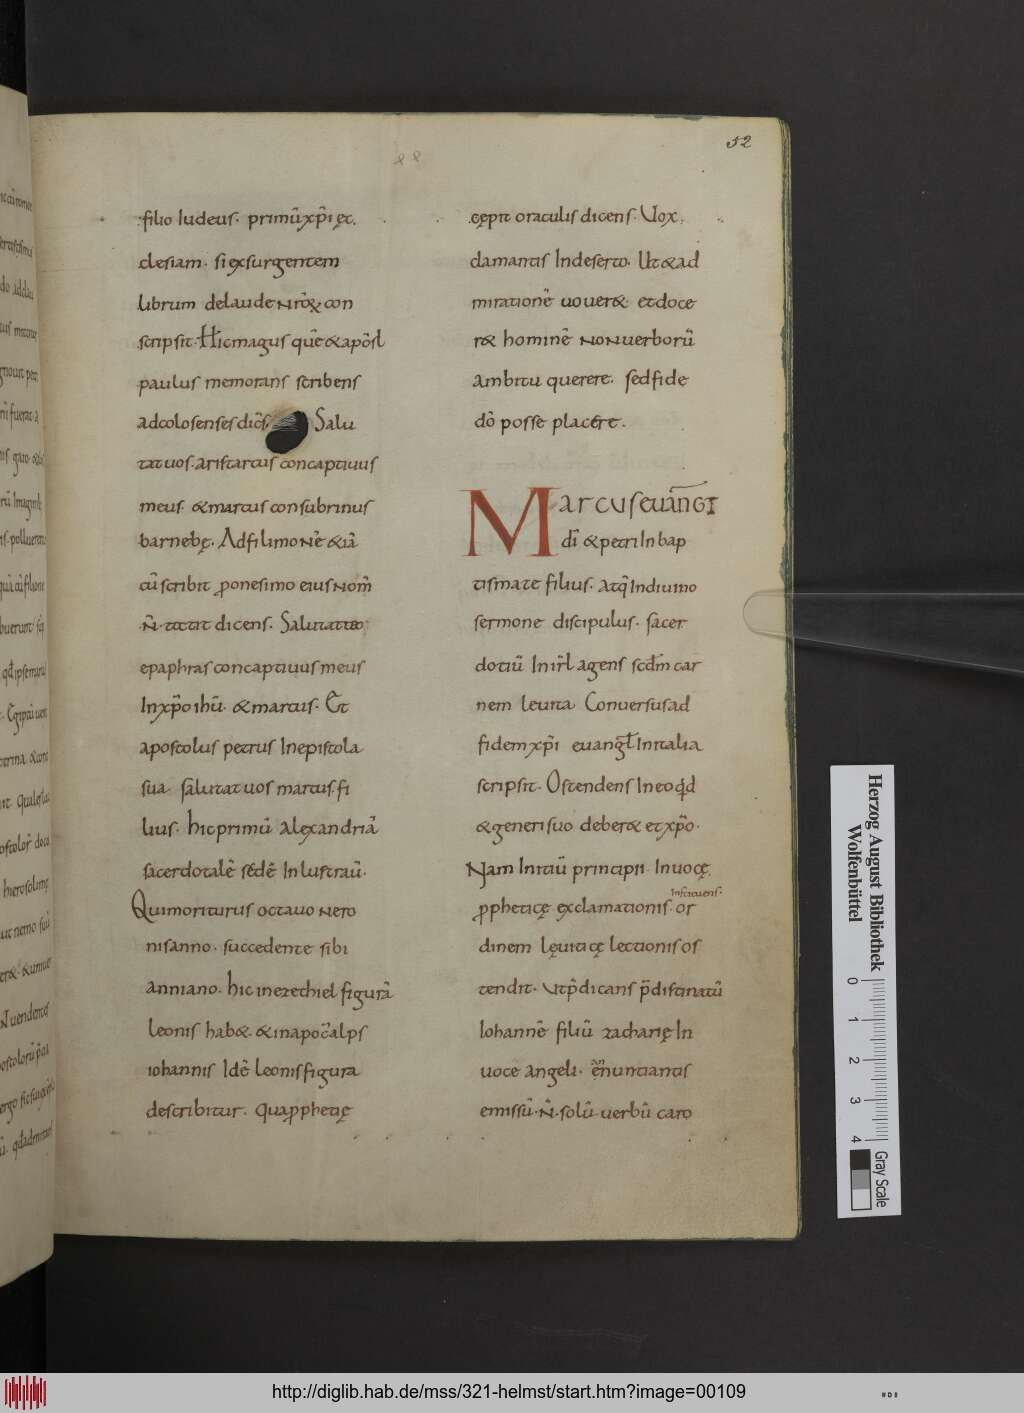 52
filio Iudeus. primũ xp̃i ęc
clesiam. si exsurgentem
librum de laude nr̃oꝝ con
scripsit. Hic magus quẽ & apõsl
paulus memorans scribens
ad colosenses dic̃s. Salu
tat uos. aristarcus concaptiuus
meus. & marcus consubrinus
barnebę. Ad filimonẽ & iã
cũ scribit ꝓ onesimo eius nom̃
ñ. tetit dicens. Salutat te
epaphras concaptiuus meus
In xp̃o ihũ. & marcus. Et
apostolus petrus In epistola
sua. salutat uos marcus. fi
lius. hic primũ alexandriã
sacerdotalẽ sedẽ In lustraũ.
Qui moriturus octauo nero
nis anno. succedente sibi
anniano. hic in ezechiel figurã
leonis hab&. & in apoc̃alps
iohannis Idẽ leonis figura
describitur. qua ꝓphetię
cępit oraculis dicens. Uox
clamantis In deserto. Ut & ad
mirationẽ uouer&. et doce
r& hominẽ non uerborũ
ambitu querere. sed fide
dõ posse placere.
Marcus euãngi
dĩ & petri In bap
tismate filius. atq̃ In diuino
sermone discipulus. sacer
dotiũ In ir̃l agens scd̃m car
nem leuita. Conuersus ad
fidem xp̃i euangł In italia
scripsit. Ostendens In eo q̃d
& generi suo deber& et xp̃o.
Nam Initiũ principii. In uocę
Instituens.
ꝓpheticę exclamationis. or
dinem lęuiticę lectionis os
tendit. Ut p̃dicans p̃distinatũ
Iohannẽ filiũ zacharię In
uoce angeli. ẽnuntiantis
emissũ. ñ. solũ uerbũ caro
Herzog August Bibliothek
Wolfenbüttel
0 1 2 3 4
Gray Scale
http://diglib.hab.de/mss/321-helmst/start.htm?image=00109